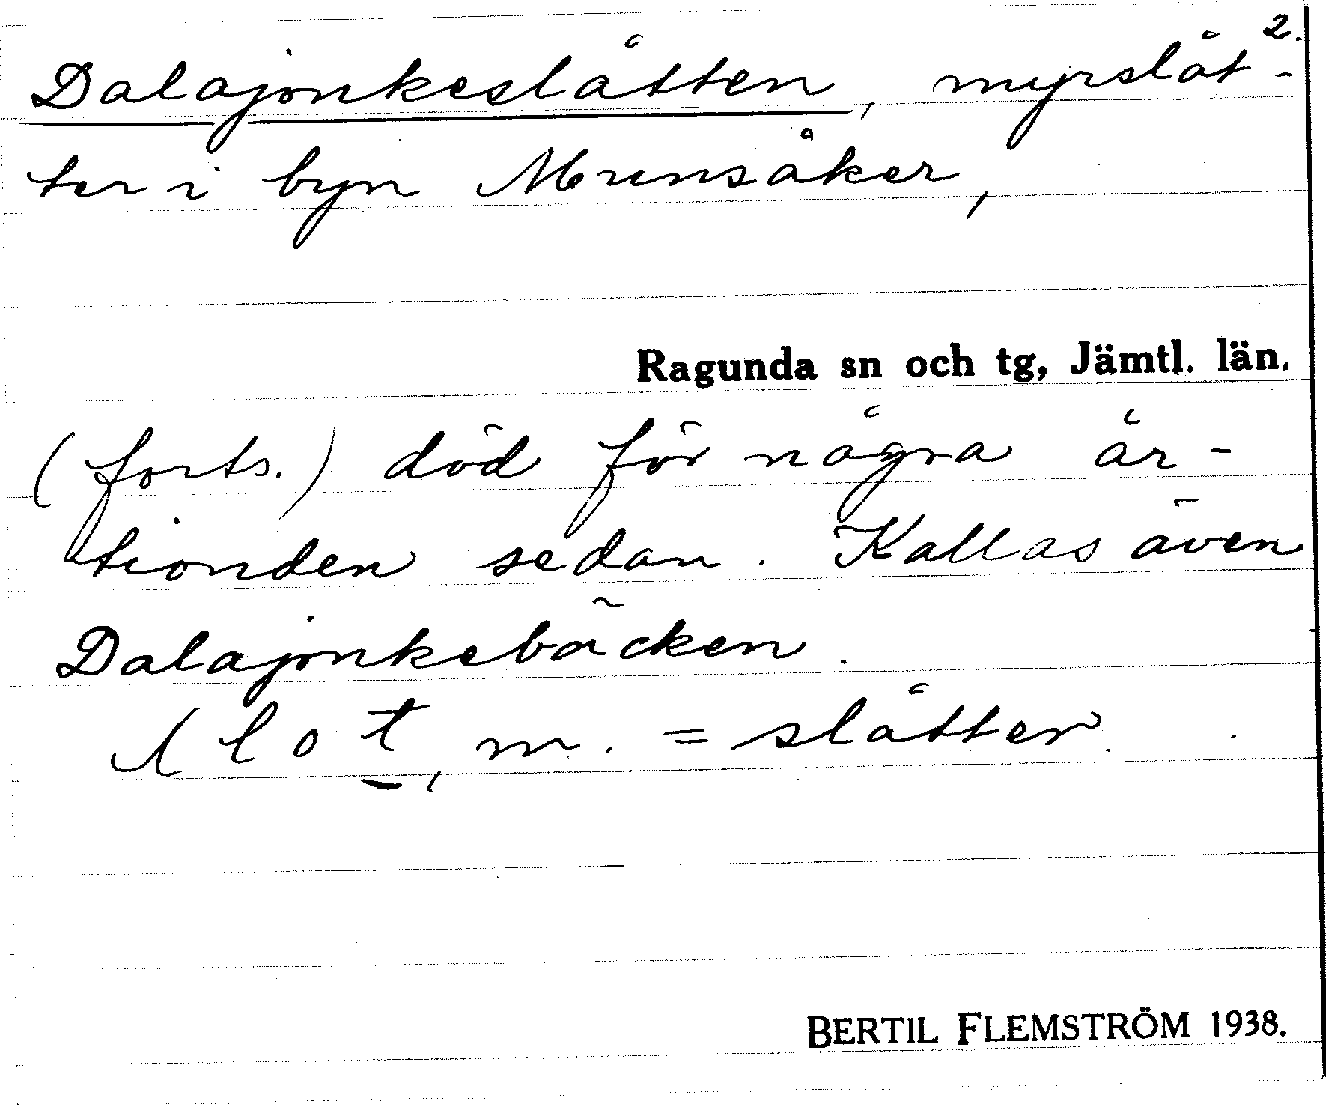 2.
Dalajonkeslåtten, myrslåt-
ter i byn Munsåker,
Ragunda sn och tg, Jämtl. län.
(forts.) död för några år-
tionden sedan. Kallas även
Dalajonkebäcken.
slot, m. = slåtter.
BERTIL FLEMSTRÖM 1938.